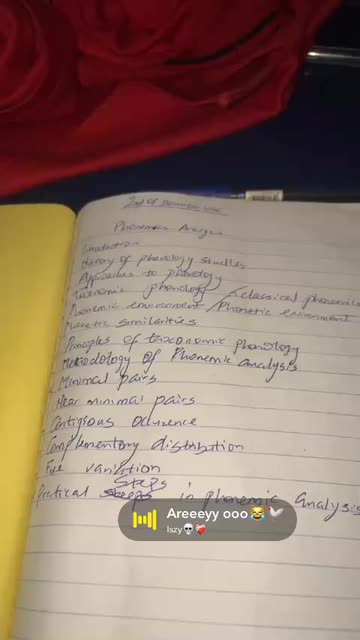 2nd Of December
Phonemic Analysis
Introduction
theory of phonology studies
Approaches to phonology
Taxonomic phonology / classical phonemics
Phonemic environment / Phonetic environment
Phonetic similarities
Principles of taxonomic phonology
Methodology of Phonemic analysis
Minimal pairs
Near minimal pairs
Contigious occurence
Complementory distribution
Free variation
Steps
Practical steps in phonemic analysis
Areeeyy ooo😂🕊
Iszy💀❤️‍🩹